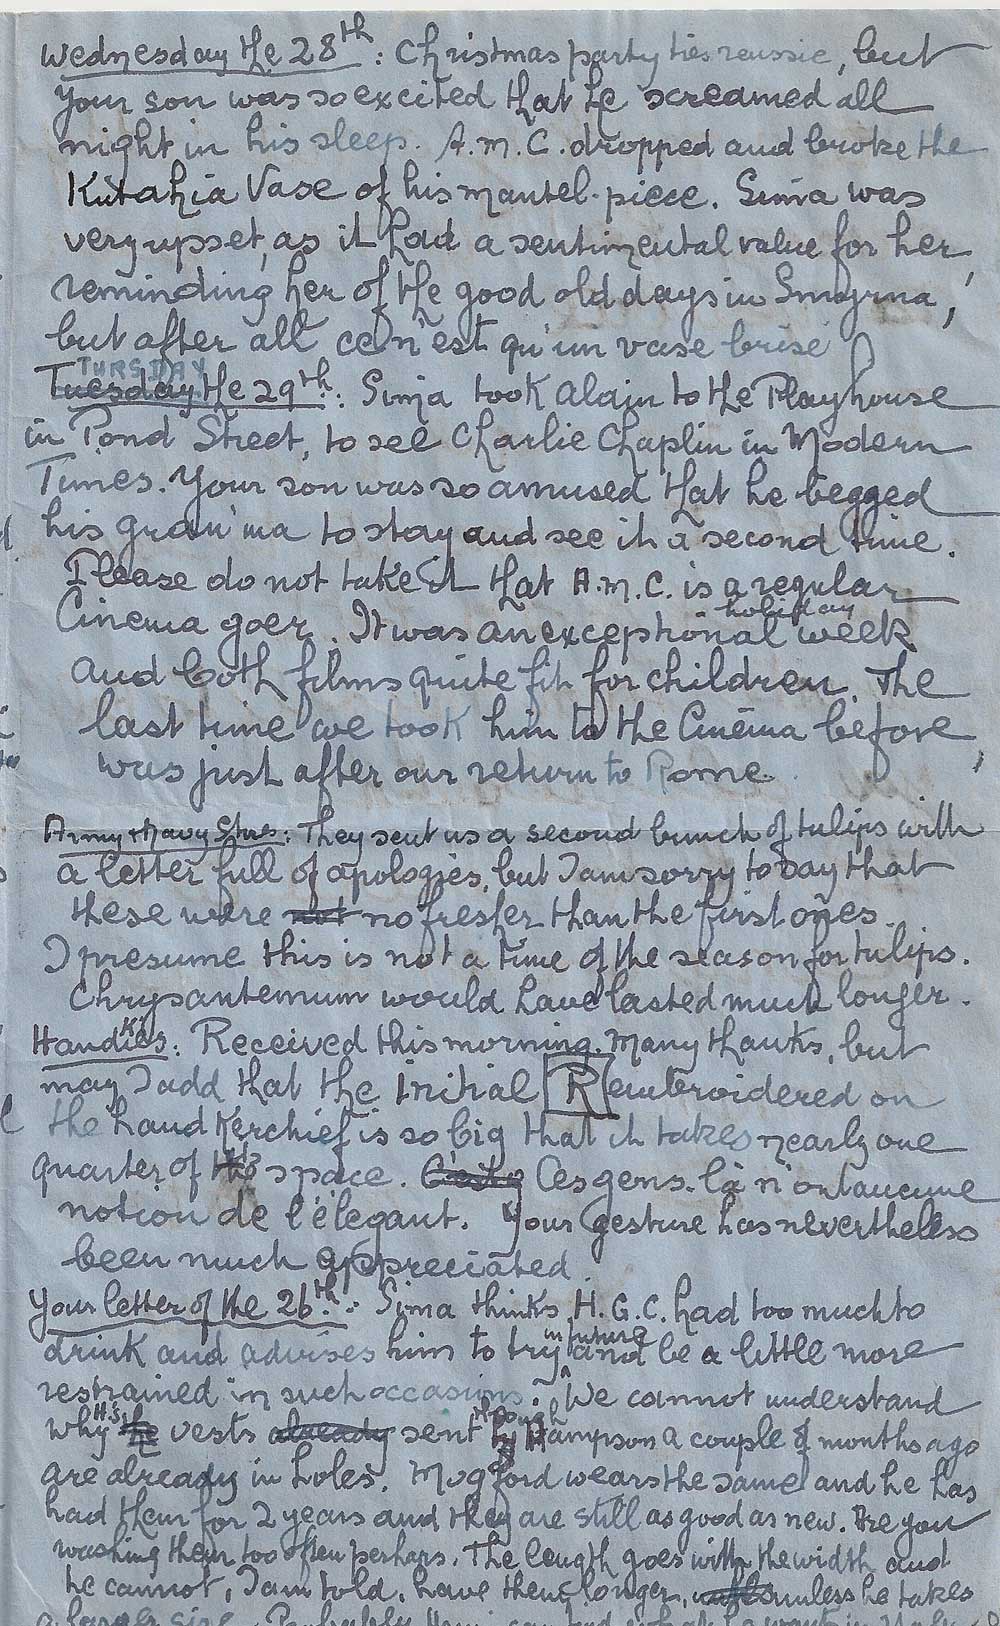 Wednesday the 28th: Christmas party très reussie, but
your son was so excited that he screamed all
night in his sleep. A.M.C. dropped and broke the
Kutahia Vase of his mantel-piece. Sima was
very upset, as it had a sentimental value for her,
reminding her of the good old days in Smyrna,
but after all ce n'est qu'un vase brisé
TURSDAY
Tuesday the 29th: Sima took Alain to the Playhouse
in Pond Street, to see Charlie Chaplin in Modern
Times. Your son was so amused that he begged
his gran'ma to stay and see it a second time.
Please do not take it that A.M.C. is a regular
Cinema goer. It was an exceptional holiday week
and both films quite fit for children. The
last time we took him to the Cinema before,
was just after our return to Rome.
Army & Navy Stores: They sent us a second bunch of tulips with
a letter full of apologies, but I am sorry to say that
these were not no fresher than the first ones.
I presume this is not a time of the season for tulips.
Chrysantemum would have lasted much longer.
Handkies: Received this morning. Many thanks, but
may I add that the initial R embroidered on
the handkerchief is so big that it takes nearly one
quarter of the space. C'est Ces gens-là n'ont aucune
notion de l'élegant. Your gesture has nevertheless
been much appreciated.
Your letter of the 26th: Sima thinks H.G.C. had too much to
drink and advises him to try in future and be a little more
restrained in such occasions. We cannot understand
why H.S. he vests already sent through Hampson a couple of months ago
are already in holes. Mogford wears the same and he has
had them for 2 years and they are still as good as new. Are you
washing them too often perhaps. The length goes with the width and
he cannot, I am told, have them longer, unless he takes
a larger size. Probably